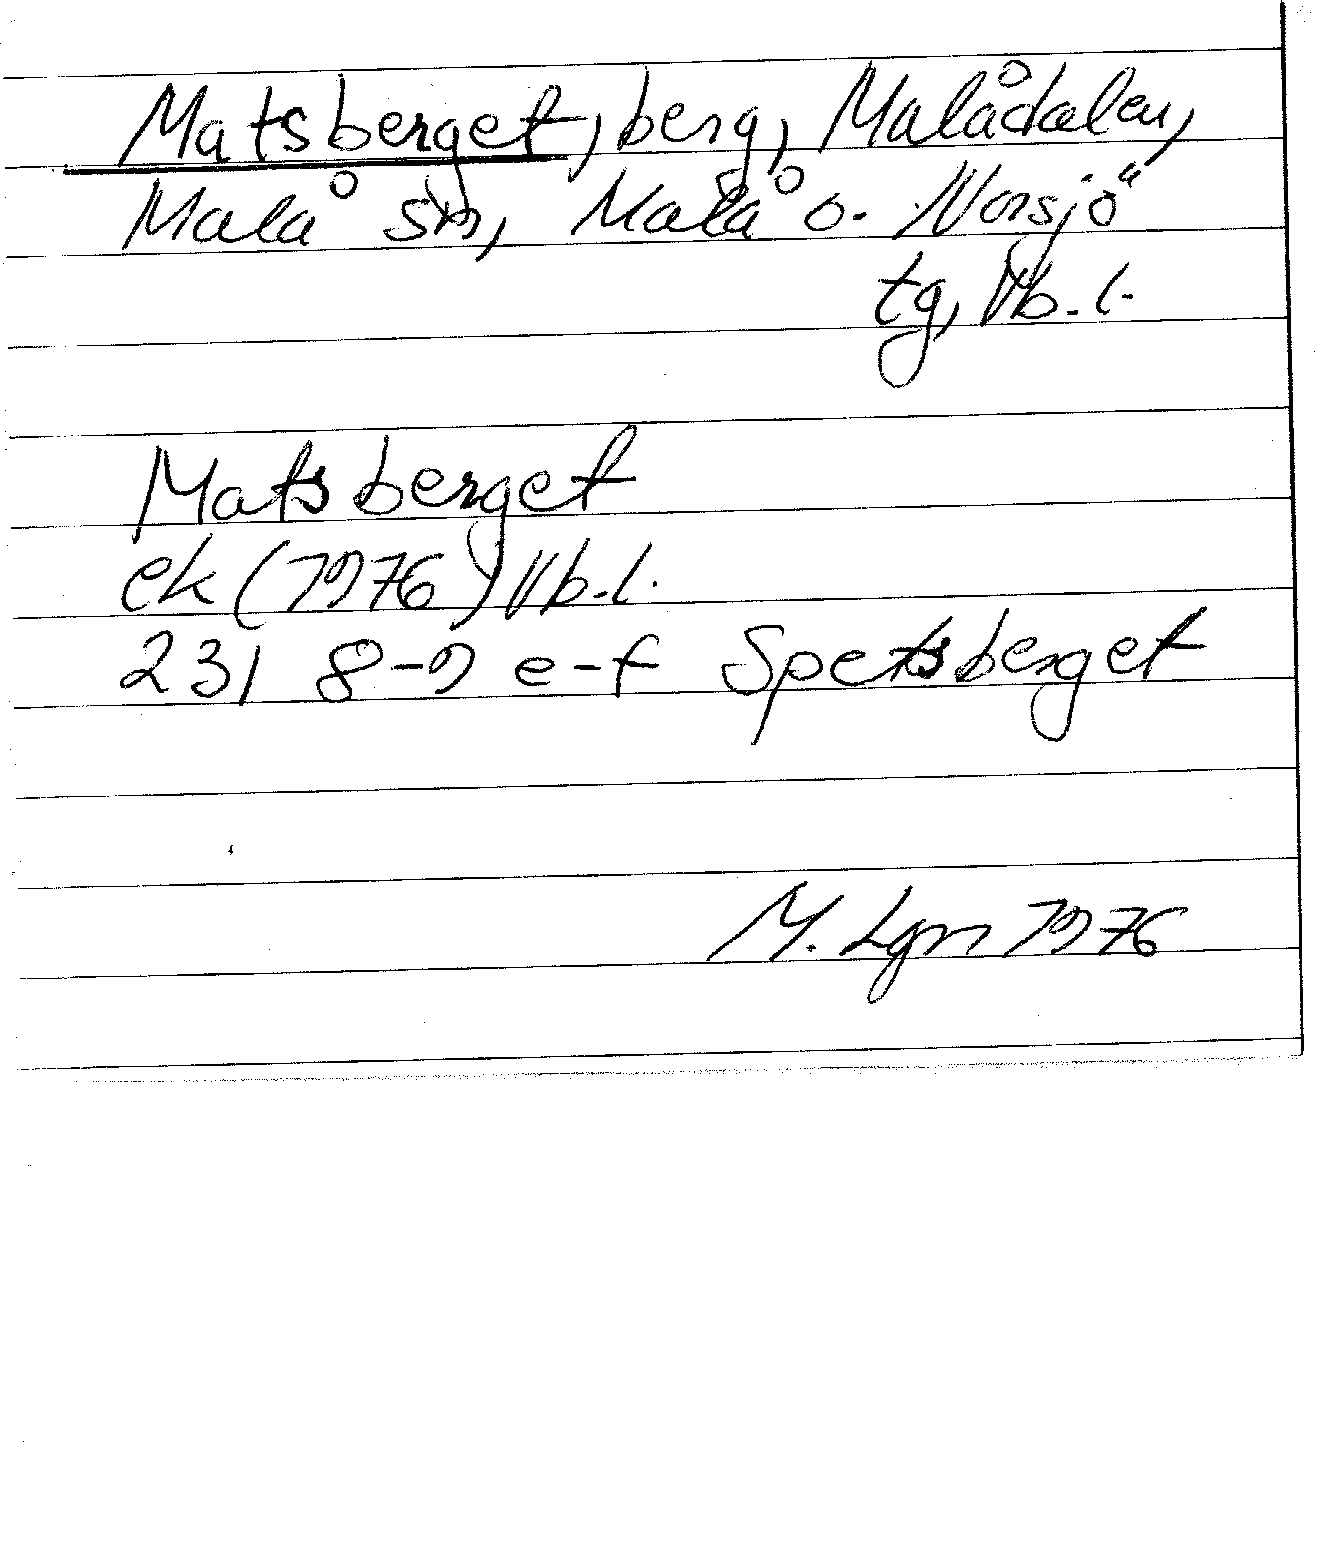 Matsberget, berg, Malådalen,
Malå sn, Malå o. Norsjö
tg, Vb.l.
Matsberget
ek (1976) Vb.l.
231 8-9 e-f Spetsberget
M. Lgn 1976